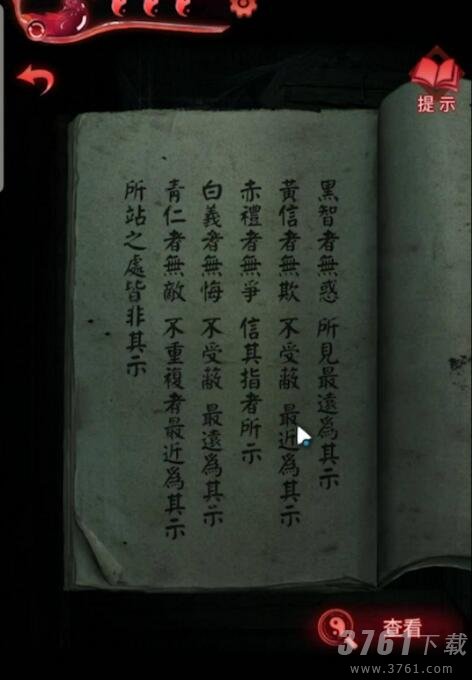 提示
黑智者無惑 所見最遠為其示
黃信者無欺 不受蔽 最近為其示
赤禮者無爭 信其指者所示
白義者無悔 不受蔽 最遠為其示
青仁者無敵 不重複者最近為其示
所站之處皆非其示
查看
3761下载
www.3761.com